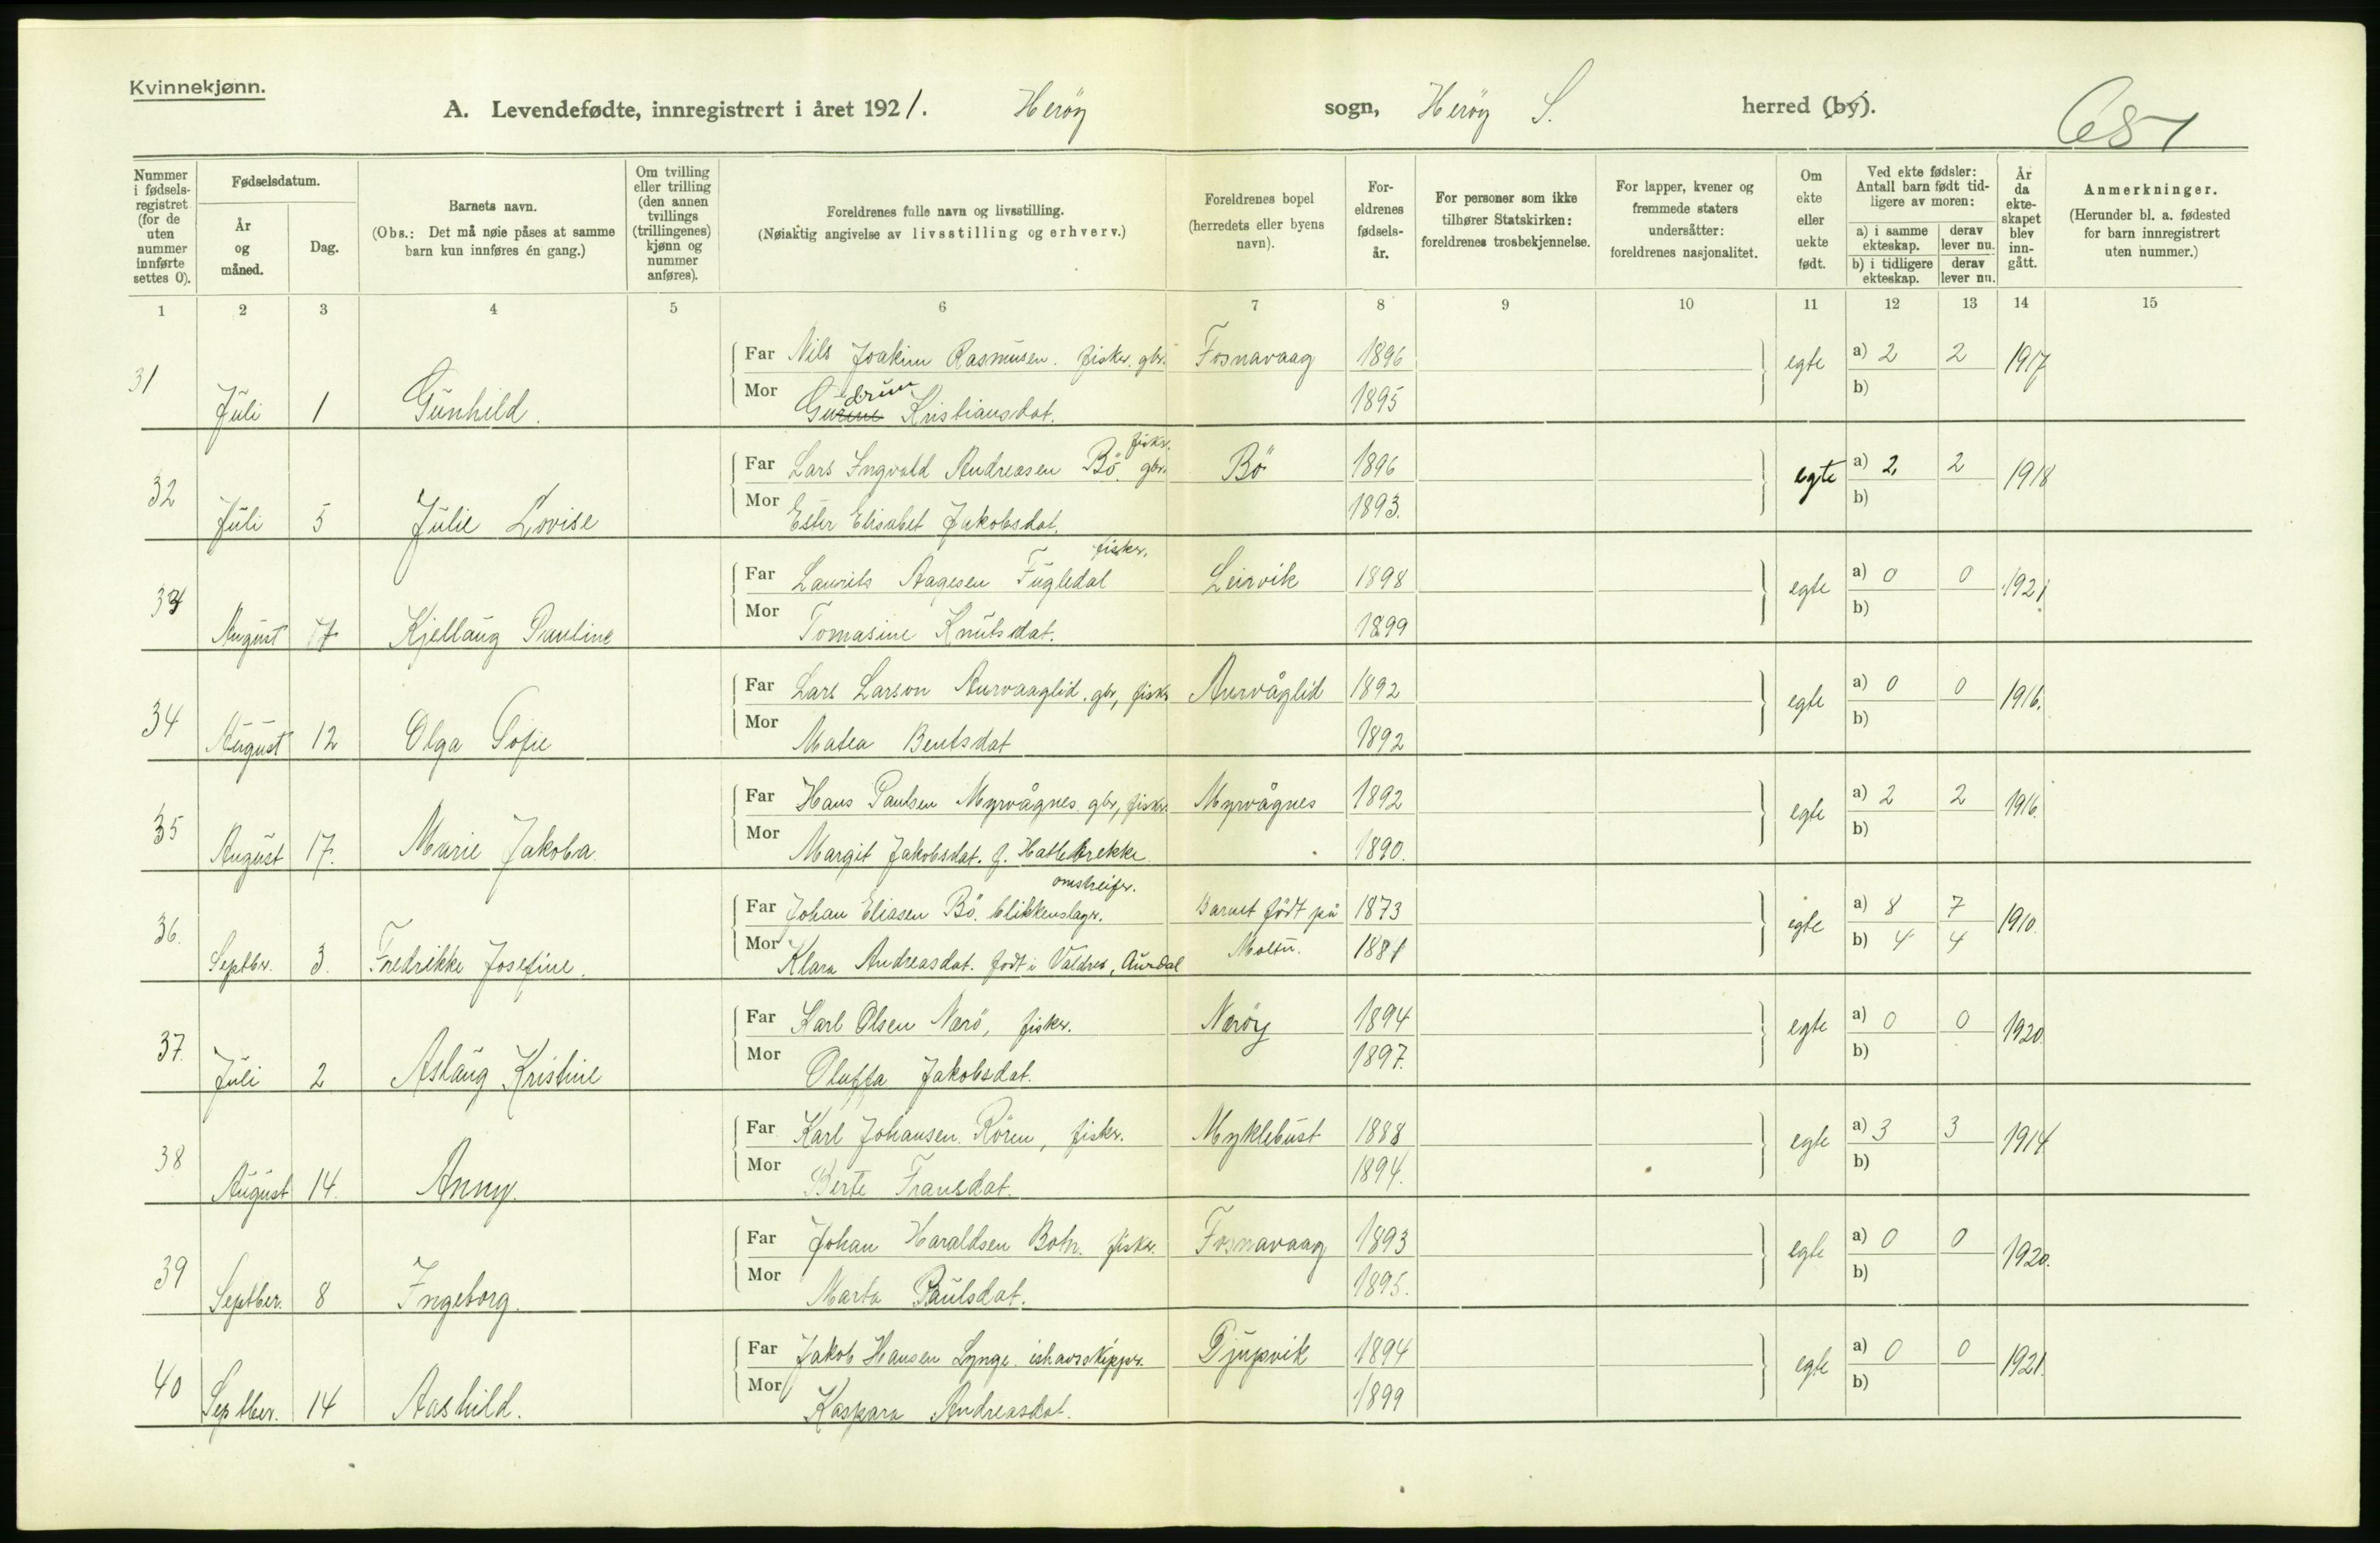 Kvinnekjønn.
A. Levendefødte, innregistrert i året 1921. Heröy sogn, Heröy S. herred (by).
651
Nummer i fødselsregistret (for de uten nummer innførte settes 0).
Fødselsdatum.
År og måned.
Dag.
Barnets navn.
(Obs.: Det må nøie påses at samme barn kun innføres én gang.)
Om tvilling eller trilling (den annen tvillings (trillingenes) kjønn og nummer anføres).
Foreldrenes fulle navn og livsstilling.
(Nøiaktig angivelse av livsstilling og erhverv.)
Foreldrenes bopel (herredets eller byens navn).
Foreldrenes fødselsår.
For personer som ikke tilhører Statskirken: foreldrenes trosbekjennelse.
For lapper, kvener og fremmede staters undersåtter: foreldrenes nasjonalitet.
Om ekte eller uekte født.
Ved ekte fødsler: Antall barn født tidligere av moren:
a) i samme ekteskap. derav lever nu.
b) i tidligere ekteskap. derav lever nu.
År da ekteskapet blev inngått.
Anmerkninger.
(Herunder bl. a. fødested for barn innregistrert uten nummer.)
1 2 3 4 5 6 7 8 9 10 11 12 13 14 15
31 Juli 1 Gunhild. Far Nils Joakim Rasmusen. fisker. gbr. Fosnavaag 1896 egte a) 2 2 1917
Mor Gudrun Kristiansdat. 1895 b)
32 Juli 5 Julie Lovise Far Lars Ingvald Andreasen Bö. gbr. fisker. Bö 1896 egte a) 2 2 1918
Mor Ester Elisabet Jakobsdat. 1893. b)
33 August 17 Kjellaug Pauline Far Laurits Aagesen Fugledal fisker. Leirvik 1898 egte a) 0 0 1921
Mor Tomasine Knutsdat. 1899 b)
34 August 12 Olga Sofie Far Lars Larson Aurvaaglid. gbr, fisker Aurvåglid 1892 egte a) 0 0 1916.
Mor Matea Bentsdat 1892 b)
35 August 17. Marie Jakoba. Far Hans Paulsen Myrvågnes. gbr, fisker. Myrvågnes 1892 egte a) 2 2 1916.
Mor Margit Jakobsdat. f. Hatlebrekke. 1890. b)
36. Septbr. 3. Fredrikke Josefine. Far Johan Eliasen Bö. blikkenslager. omstreifer. Barnet födt på 1873 egte a) 8 7 1910.
Mor Klara Andreasdat. födt i Valdres, Aurdal Moltu. 1881 b) 4 4
37. Juli 2 Aslaug Kristine Far Karl Olsen Nærö, fisker. Neröy 1894 egte a) 0 0 1920.
Mor Oluffa Jakobsdat. 1897. b)
38 August 14. Anny. Far Karl Johansen Rören, fisker. Myklebust 1888 egte a) 3 3 1914
Mor Berte Fransdat. 1894. b)
39 Septber. 8 Ingeborg. Far Johan Haraldsen Botn. fisker. Fosnavaag 1893 egte a) 0 0 1920.
Mor Marta Paulsdat. 1895. b)
40 Septber. 14 Aashild. Far Jakob Hansen Lynge. ishavsskipper. Djupvik 1894 egte a) 0 0 1921.
Mor Kaspara Andreasdat. 1899 b)